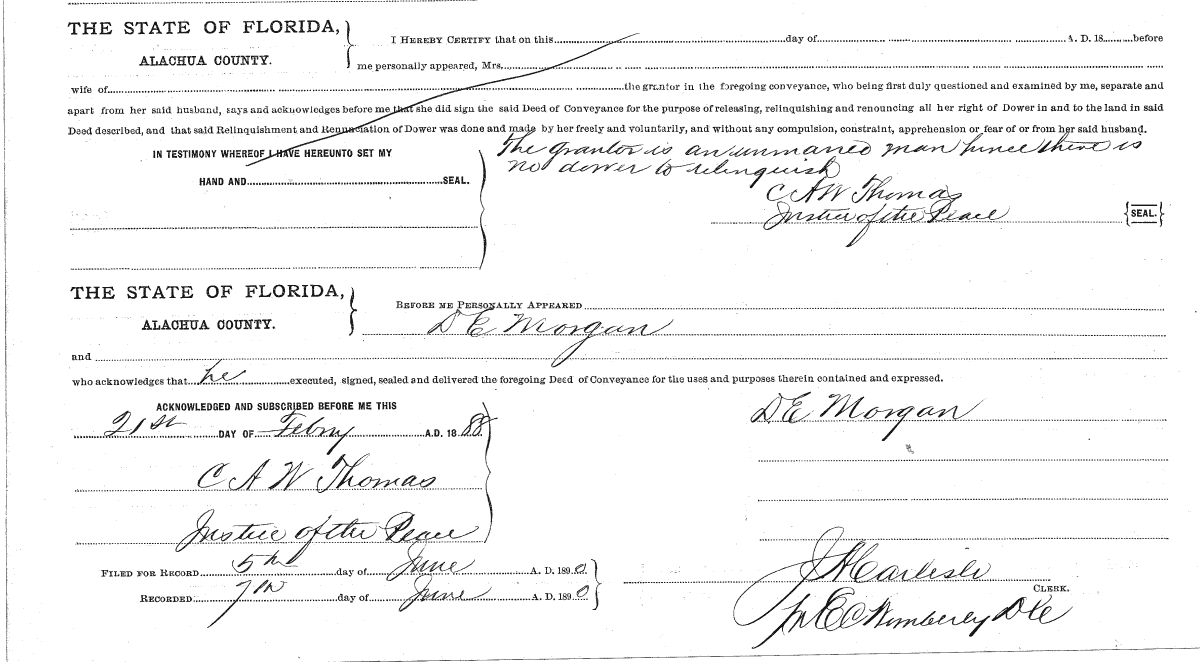 THE STATE OF FLORIDA,
ALACHUA COUNTY.
I HEREBY CERTIFY that on this day of A. D. 18 before
me personally appeared, Mrs.
wife of the grantor in the foregoing conveyance, who being first duly questioned and examined by me, separate and
apart from her said husband, says and acknowledges before me that she did sign the said Deed of Conveyance for the purpose of releasing, relinquishing and renouncing all her right of Dower in and to the land in said
Deed described, and that said Relinquishment and Renunciation of Dower was done and made by her freely and voluntarily, and without any compulsion, constraint, apprehension or fear of or from her said husband.
IN TESTIMONY WHEREOF I HAVE HEREUNTO SET MY
HAND AND SEAL.
The grantor is an unmaried man hence there is
no dower to relinquish
C A W Thomas
Justice of the Peace {SEAL.}
THE STATE OF FLORIDA,
ALACHUA COUNTY.
BEFORE ME PERSONALLY APPEARED
D E Morgan
and
who acknowledges that he executed, signed, sealed and delivered the foregoing Deed of Conveyance for the uses and purposes therein contained and expressed.
ACKNOWLEDGED AND SUBSCRIBED BEFORE ME THIS
21st DAY OF Febry A.D. 18 88
C A W Thomas
Justice of the Peace
D E Morgan
FILED FOR RECORD 5th day of June A. D. 1890
RECORDED 7th day of June A. D. 1890
J A Carlisle
CLERK.
E C Wimberly D C